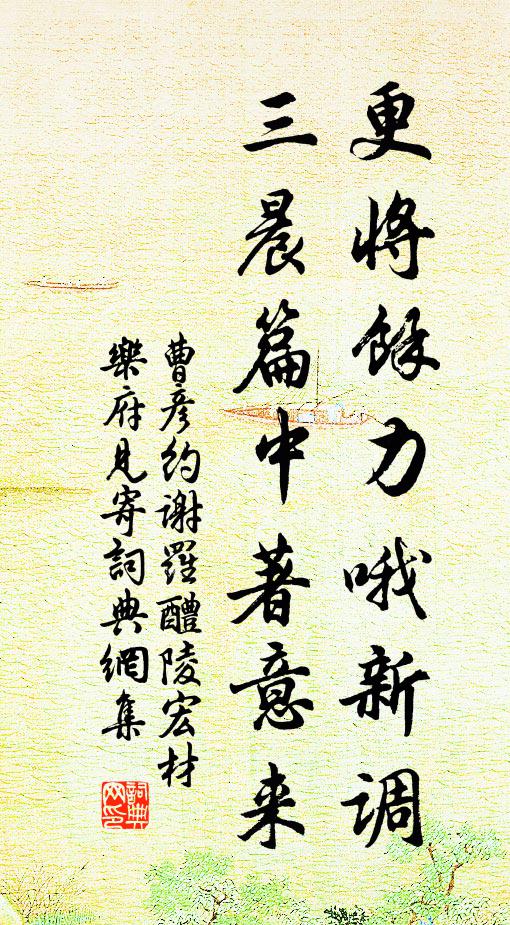 更将馀力哦新调
三晨篇中著意来
曹彦约谢罗醴陵宏材
乐府见寄词典網集
詞典網印